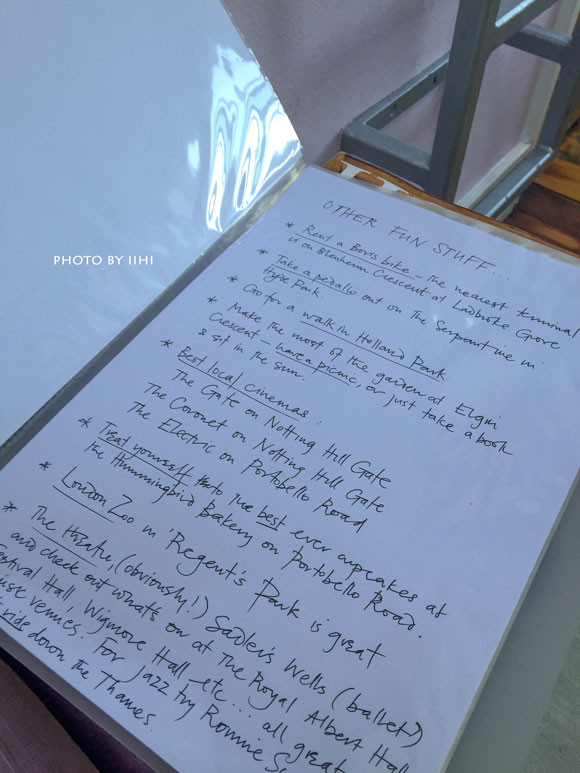 PHOTO BY IIHI
OTHER FUN STUFF...
* Rent a Boris bike - the nearest terminal
is on Blenheim Crescent at Ladbroke Grove
* Take a pedalo out on the Serpentine in
Hyde Park
* Go for a walk in Holland Park
* Make the most of the garden at Elgin
Crescent - have a picnic, or just take a book
& sit in the sun.
* Best local cinemas:
The Gate on Notting Hill Gate
The Coronet on Notting Hill Gate
The Electric on Portobello Road
* Treat yourself to the best ever cupcakes at
the Hummingbird Bakery on Portobello Road.
* London Zoo in Regent's Park is great
* The theatre, (obviously!) Sadler's Wells (ballet)
and check out what's on at the Royal Albert Hall
Festival Hall, Wigmore Hall etc... all great
venues. For jazz try Ronnie
ride down the Thames.